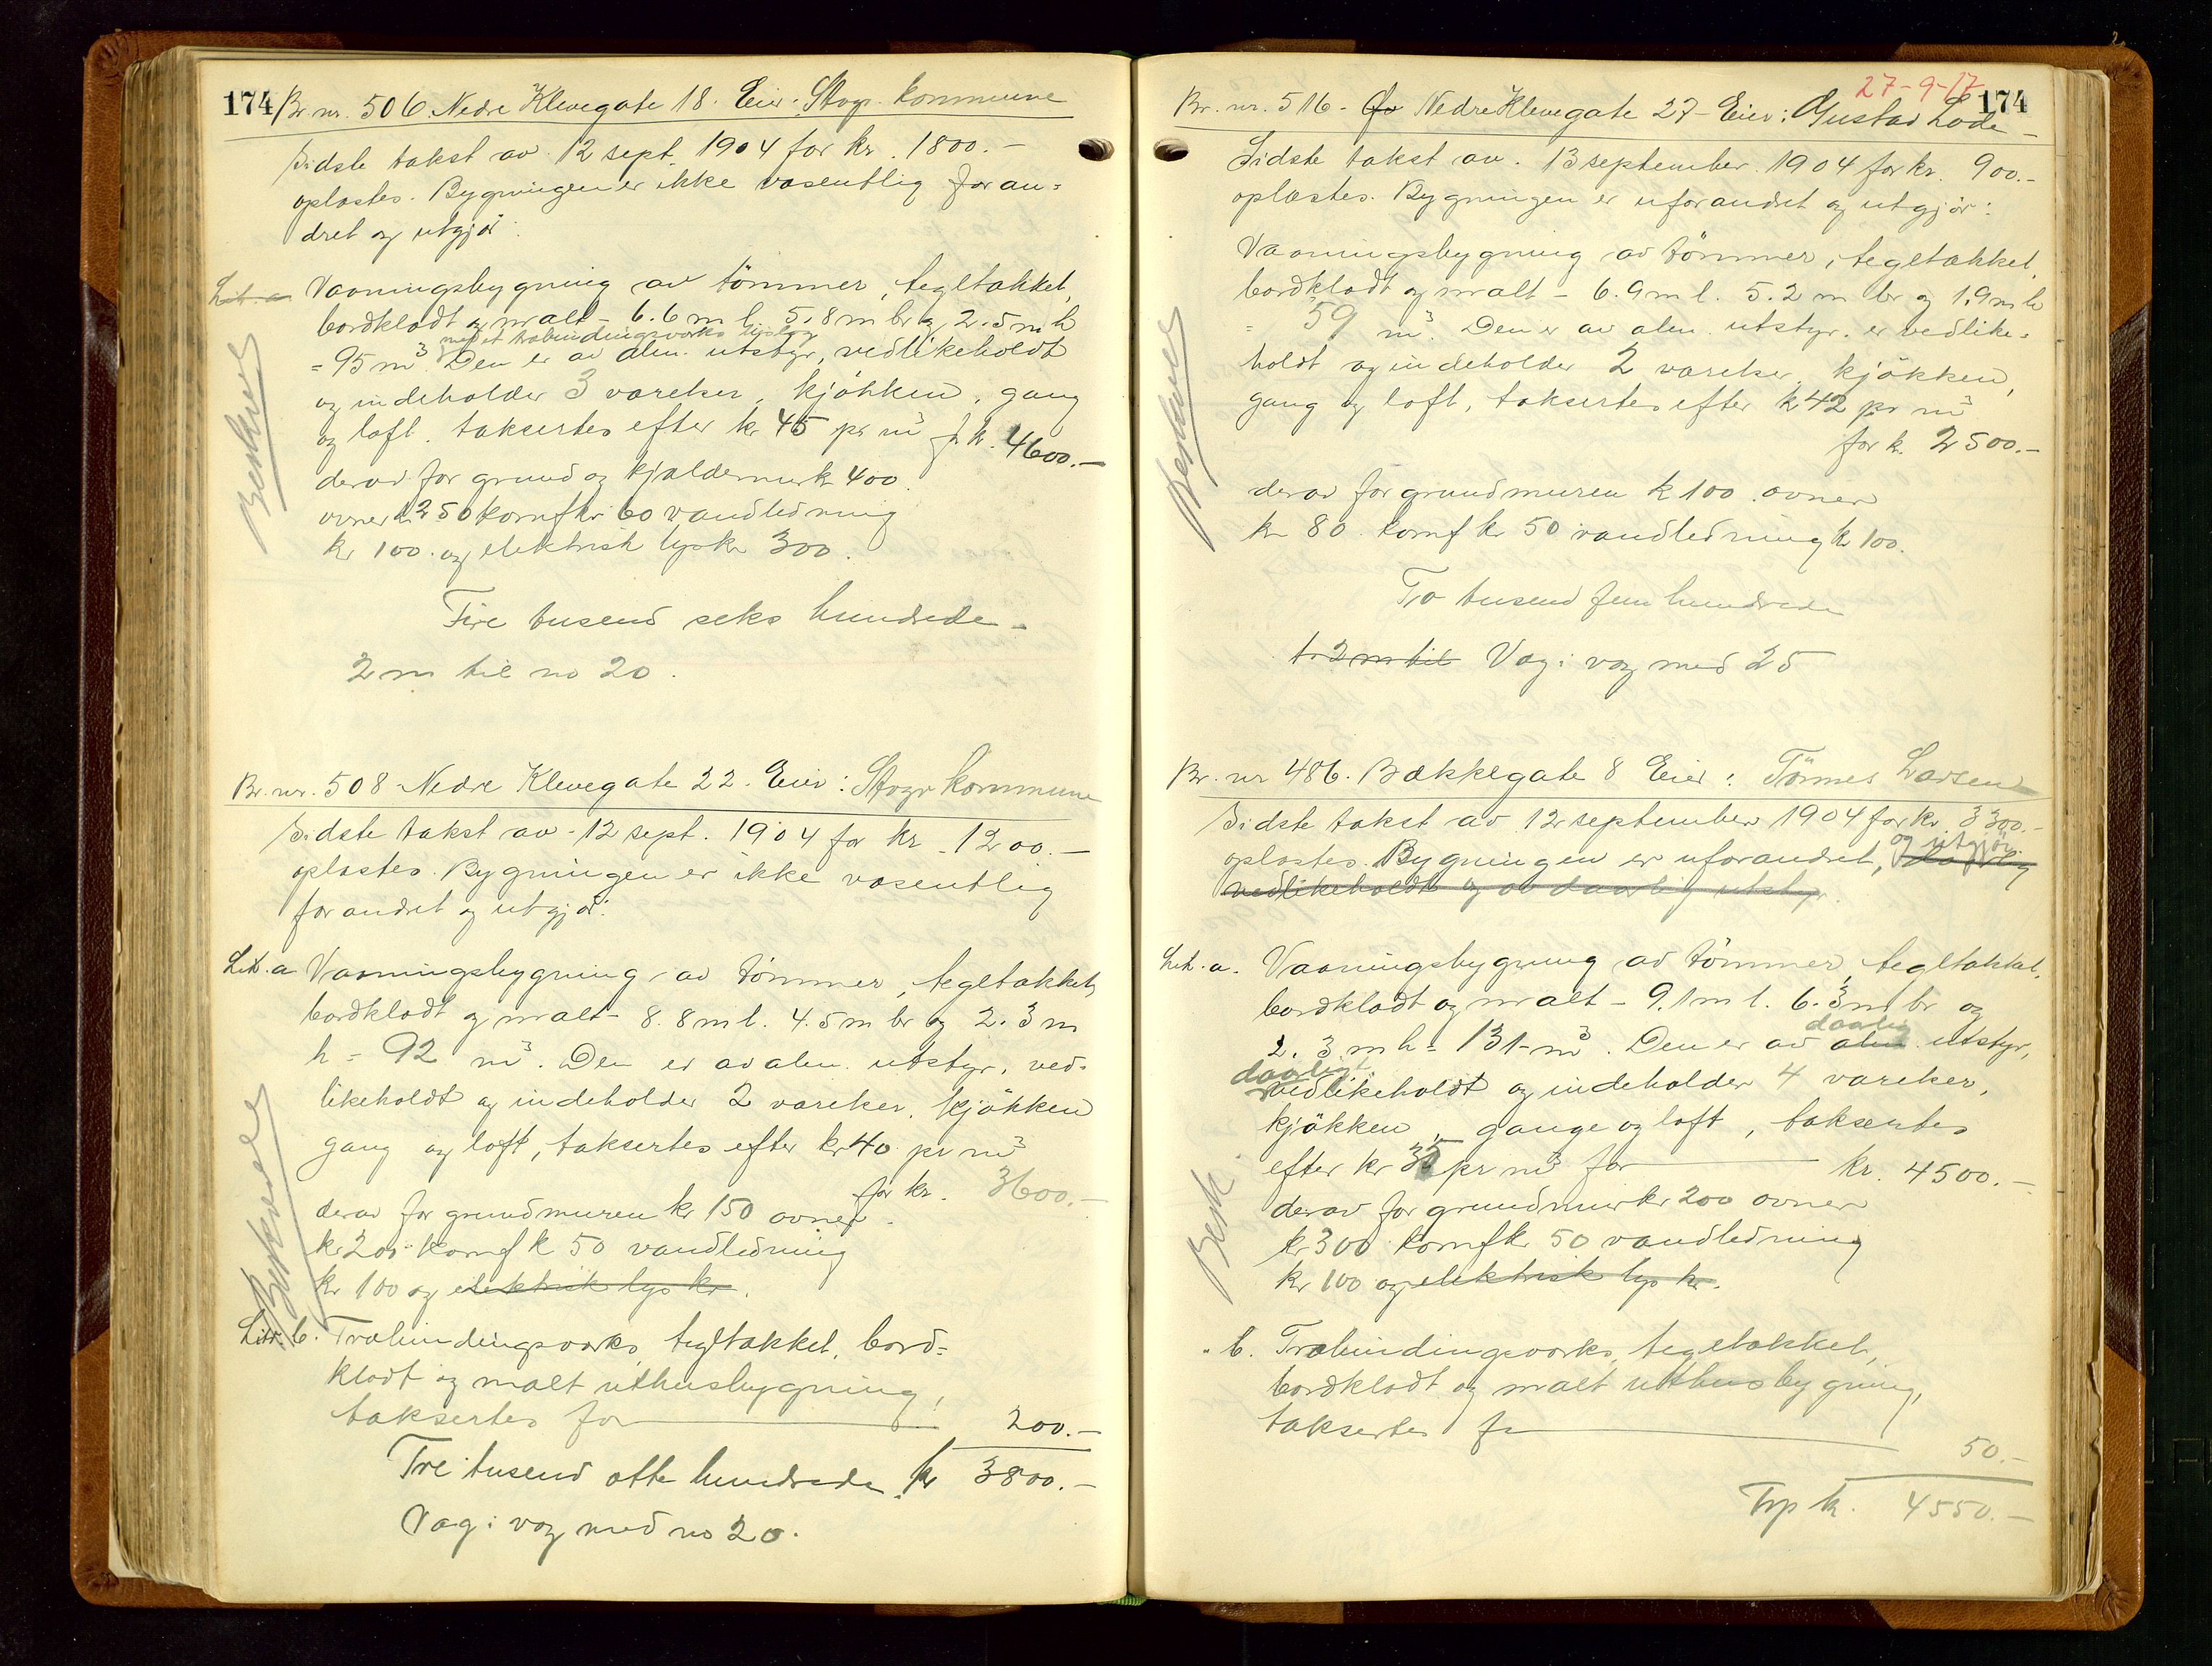 174 Br. nr. 506. Nedre Klevegate 18. Eier: Stvgr. kommune
Sidste takst av 12 sept. 1904 for kr. 1800.-
oplæstes. Bygningen er ikke væsentlig foran-
dret og utgjör:
Lit. a Vaaningsbygning av tömmer, tegltækket,
bordklædt og malt - 6.6 m l. 5.8 m br og 2.5 m h
med et træbindingsværks
= 95 m³. Den er av alm. utstyr, vedlikeholdt
og indeholder 3 værelser, kjökken, gang
og loft. taksertes efter kr 45 pr m³ f. kr. 4600.-
derav for grund og kjældermur kr 400.
ovner kr 250 komf kr 60 vandledning
kr 100. og elektrisk lys kr 300.
Fire tusend seks hundrede -
2 m til no 20.
Beskrevet
Br. nr. 508 - Nedre Klevegate 22. Eier: Stvgr kommune
Sidste takst av - 12 sept. 1904 for kr. 1200.-
oplæstes. Bygningen er ikke væsentlig
forandret og utgjör:
Lit. a Vaaningsbygning av tömmer, tegltækket,
bordklædt og malt - 8.8 m l. 4.5 m br og 2.3 m
h = 92 m³. Den er av alm. utstyr, ved-
likeholdt og indeholder 2 værelser, kjökken
gang og loft, taksertes efter kr 40 pr m³
for kr. 3600.-
derav for grundmuren kr 150 ovner
kr 200 komf k 50 vandledning
kr 100 og elektrisk lys kr.
Litr. b. Træbindingsværks, tegltækket, bord-
klædt og malt uthusbygning,
taksertes for 200.-
Tre tusend otte hundrede kr 3800.-
Væg i væg med no 20.
Beskrevet
27-9-17
Br. nr. 516 - Nedre Klevegate 27 - Eier: Gustav Lode - 174
Sidste takst av. 13 september 1904 for kr. 900.-
oplæstes. Bygningen er uforandret og utgjör:
Vaaningsbygning av tömmer, tegltækket,
bordklædt og malt - 6.9 m l. 5.2 m br og 1.9 m h
= 59 m³. Den er av alm. utstyr. er vedlike-
holdt og indeholder 2 værelser, kjökken,
gang og loft, taksertes efter k 42 pr m³
for k. 2500.-
derav for grundmuren k 100. ovner
kr 80. komf kr 50 vandledning kr 100.
To tusend fem hundrede
t. 2 m til Væg i væg med 25
Beskrevet
Br. nr 486. Bækkegate 8 Eier: Tönnes Larsen
Sidste takst av 12 september 1904 for kr. 3300.-
og utgjör.
oplæstes. Bygningen er uforandret, daarlig
vedlikeholdt og av daarlig utstyr.
Lit. a. Vaaningsbygning av tömmer, tegltækket,
bordklædt og malt - 9.1 m l. 6.3 m br og
daarlig
2.3 m h = 131 m³. Den er av alm utstyr,
daarligt
vedlikeholdt og indeholder 4 værelser,
kjökken, gange og loft, taksertes
efter kr 35 pr m³ for kr. 4500.-
derav for grundmur kr 200 ovner
kr 300 komf kr 50 vandledning
kr 100 og elektrisk lys kr.
" b. Træbindingsværks, tegltækket,
bordklædt og malt uthusbygning,
taksertes for 50.-
Tsp kr. 4550.-
Besk.